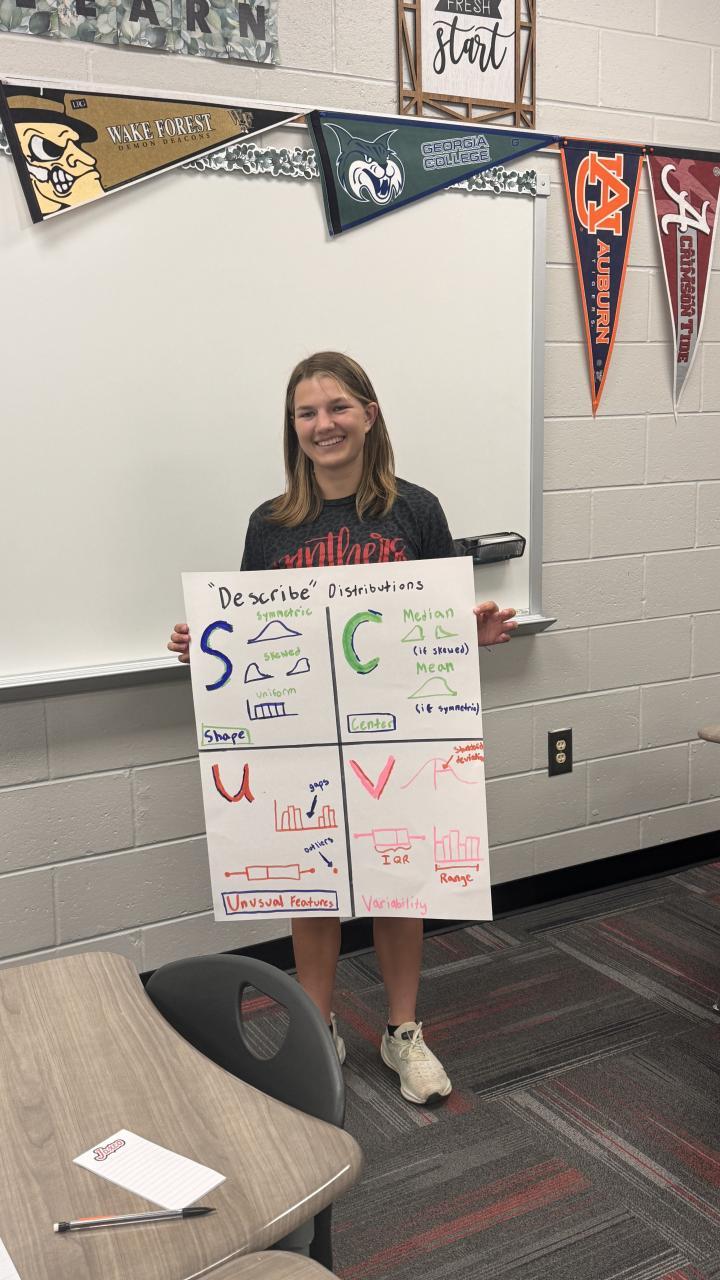 LEARN
FRESH
start
WAKE FOREST
DEMON DEACONS
WF
GEORGIA
COLLEGE
AU
AUBURN
TIGERS
A
CRIMSON TIDE
Panthers
"Describe" Distributions
S
symmetric
skewed
uniform
Shape
C
Median
(if skewed)
Mean
(if symmetric)
Center
U
gaps
outliers
Unusual Features
V
standard
deviation
IQR
Range
Variability